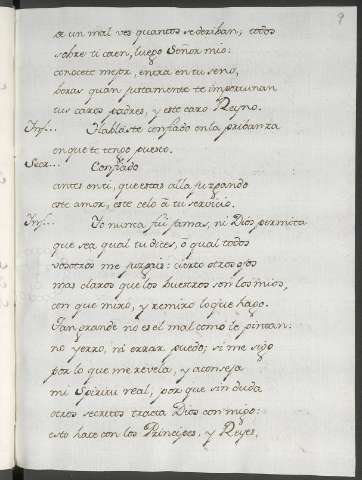 9
de un mal ves quantos se deriban; todos
sobre ti caen, luego Señor mio:
conocete mejor, entra en tu seno,
veras quan justamente te importunan
tus caros padres, y este caro Reyno.
Inf... Hablaste confiado en la pribanza
en que te tengo puesto.
Secr... Confiado
antes en ti, que estas alla juzgando
este amor, este celo â tu servicio.
Inf... Yo nunca fui jamas, ni Dios permita
que sea qual tu dices, ô qual todos
vosotros me juzgais: cierto otros ojos
mas claros que los buestros son los mios,
con que miro, y remiro lo que hago.
Tan grande no es el mal como le pintan:
no yerro, ni errar puedo; si me sigo
por lo que me revela, y aconseja
mi Spiritu real, por que sin duda
otros secretos tracta Dios con migo:
esto hace con los Principes, y Reyes,